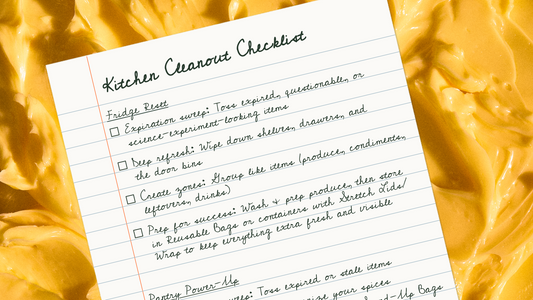 Kitchen Cleanout Checklist
Fridge Reset
Expiration sweep: Toss expired, questionable, or
science-experiment-looking items
Deep refresh: Wipe down shelves, drawers, and
the door bins
Create zones: Group like items (produce, condiments,
leftovers, drinks)
Prep for success: Wash & prep produce, then store
in Reusable Bags or containers with Stretch Lids/
Wrap to keep everything extra fresh and visible
Pantry Power-Up
sweep: Toss expired or stale items
your spices
Bags